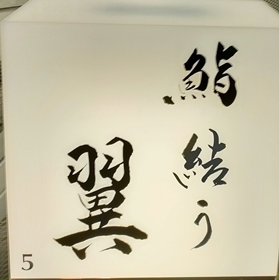 鮨 結う
翼
5